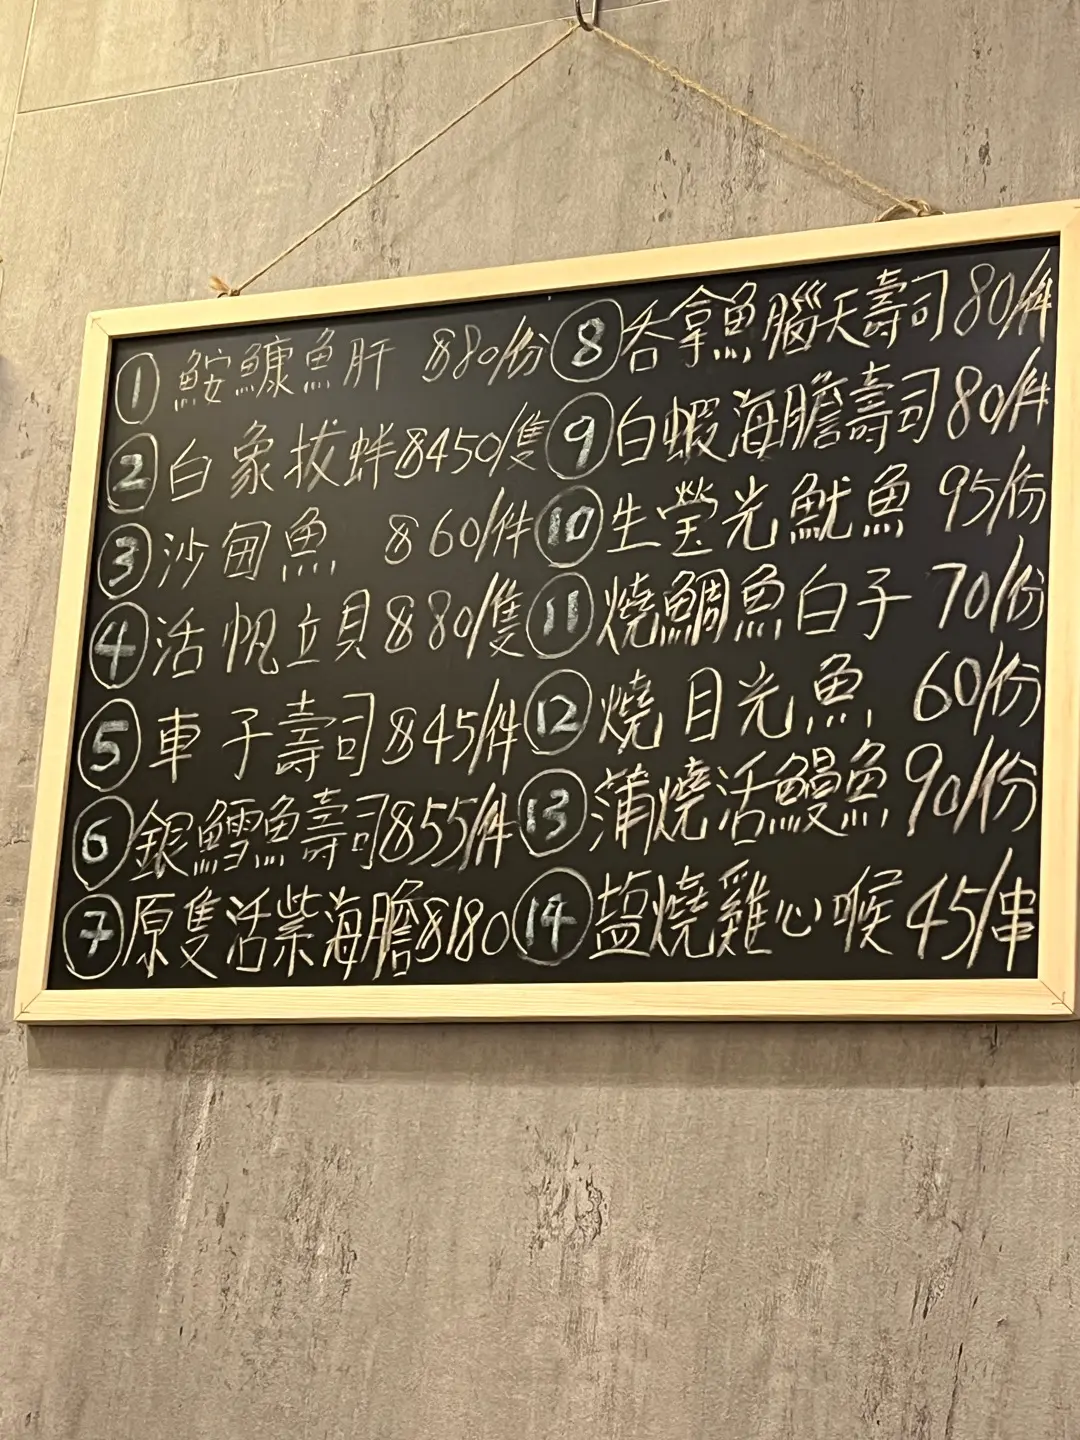 ① 鮟鱇魚肝 $80/份
② 白象拔蚌 $450/隻
③ 沙甸魚 $60/件
④ 活帆立貝 $80/隻
⑤ 車子壽司 $45/件
⑥ 銀鱈魚壽司 $55/件
⑦ 原隻活紫海膽 $180
⑧ 吞拿魚腦天壽司 80/件
⑨ 白蝦海膽壽司 80/件
⑩ 生瑩光魷魚 95/份
⑪ 燒鯛魚白子 70/份
⑫ 燒目光魚 60/份
⑬ 蒲燒活鰻魚 90/份
⑭ 塩燒雞心喉 45/串